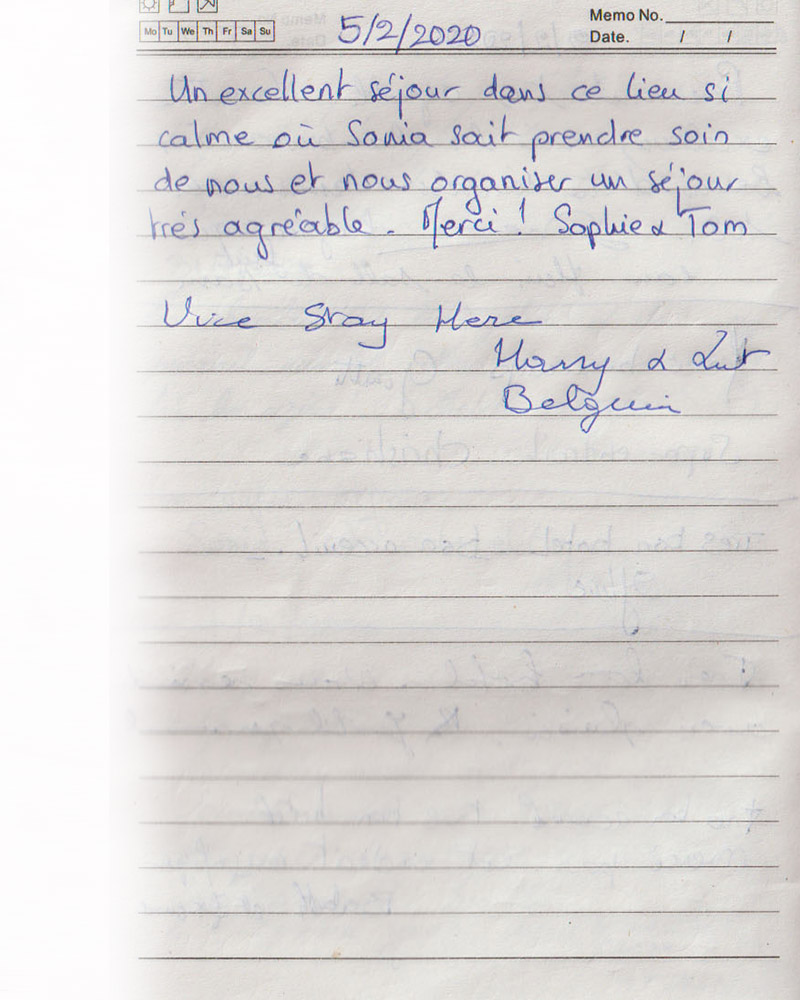 Mo Tu We Th Fr Sa Su
5/2/2020
Memo No.
Date. / /
Un excellent séjour dans ce lieu si
calme où Sonia sait prendre soin
de nous et nous organiser un séjour
très agréable. Merci ! Sophie & Tom
Vice Stay Here
Harry & Lut
Belguim